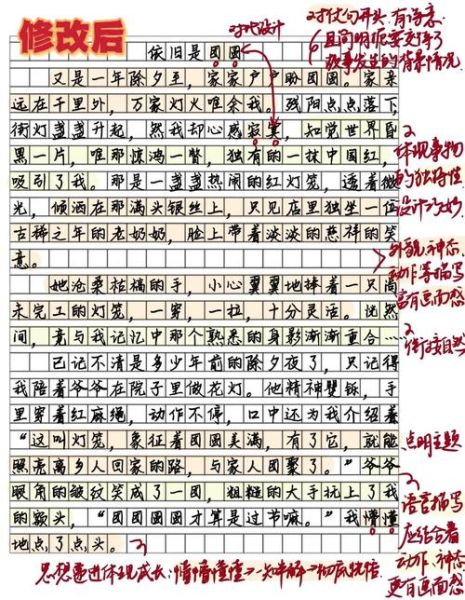 修改后
对比设计
对仗句开头,有诗意
且简明扼要交待了
故事发生的背景情况
依旧是团圆
又是一年除夕至，家家户户盼团圆。家亲
远在千里外，万家灯火唯余我。残阳点点落下，
街灯盏盏升起，然我却心感寂寞，如觉世界昏
黑一片，唯那惊鸿一瞥，独有的一抹中国红，
吸引了我。那是一盏盏热闹的红灯笼，透着微
光，倾洒在那满头银丝上，只见店里独坐一位
古稀之年的老奶奶，脸上带着淡淡的慈祥的笑
意。
体现事物
的独特性
设计巧妙
她沧桑枯槁的手，小心翼翼地捧着一只尚
未完工的灯笼，一穿，一拉，十分灵活。恍然
间，竟与我记忆中那个熟悉的身影渐渐重合……
外貌、神态、
动作等描写
富有画面感
衔接自然
已记不清是多少年前的除夕夜了，只记得
我陪着爷爷在院子里做花灯。他精神矍铄，手
里穿着红麻绳，动作不停，口中还为我介绍着
“这叫灯笼，象征着团圆美满，有了它，就能
照亮离乡人回家的路，与家人团聚了。”爷爷
眼角的皱纹笑成了一团，粗糙的大手抚上了我
的额头，“团团圆圆才算是过节嘛。”我懵懂
地点了点头。
点明主题
语言描写
应结合着
动作、神态
更有画面感
思想递进体现成长:懵懵懂懂→一知半解→彻底恍悟